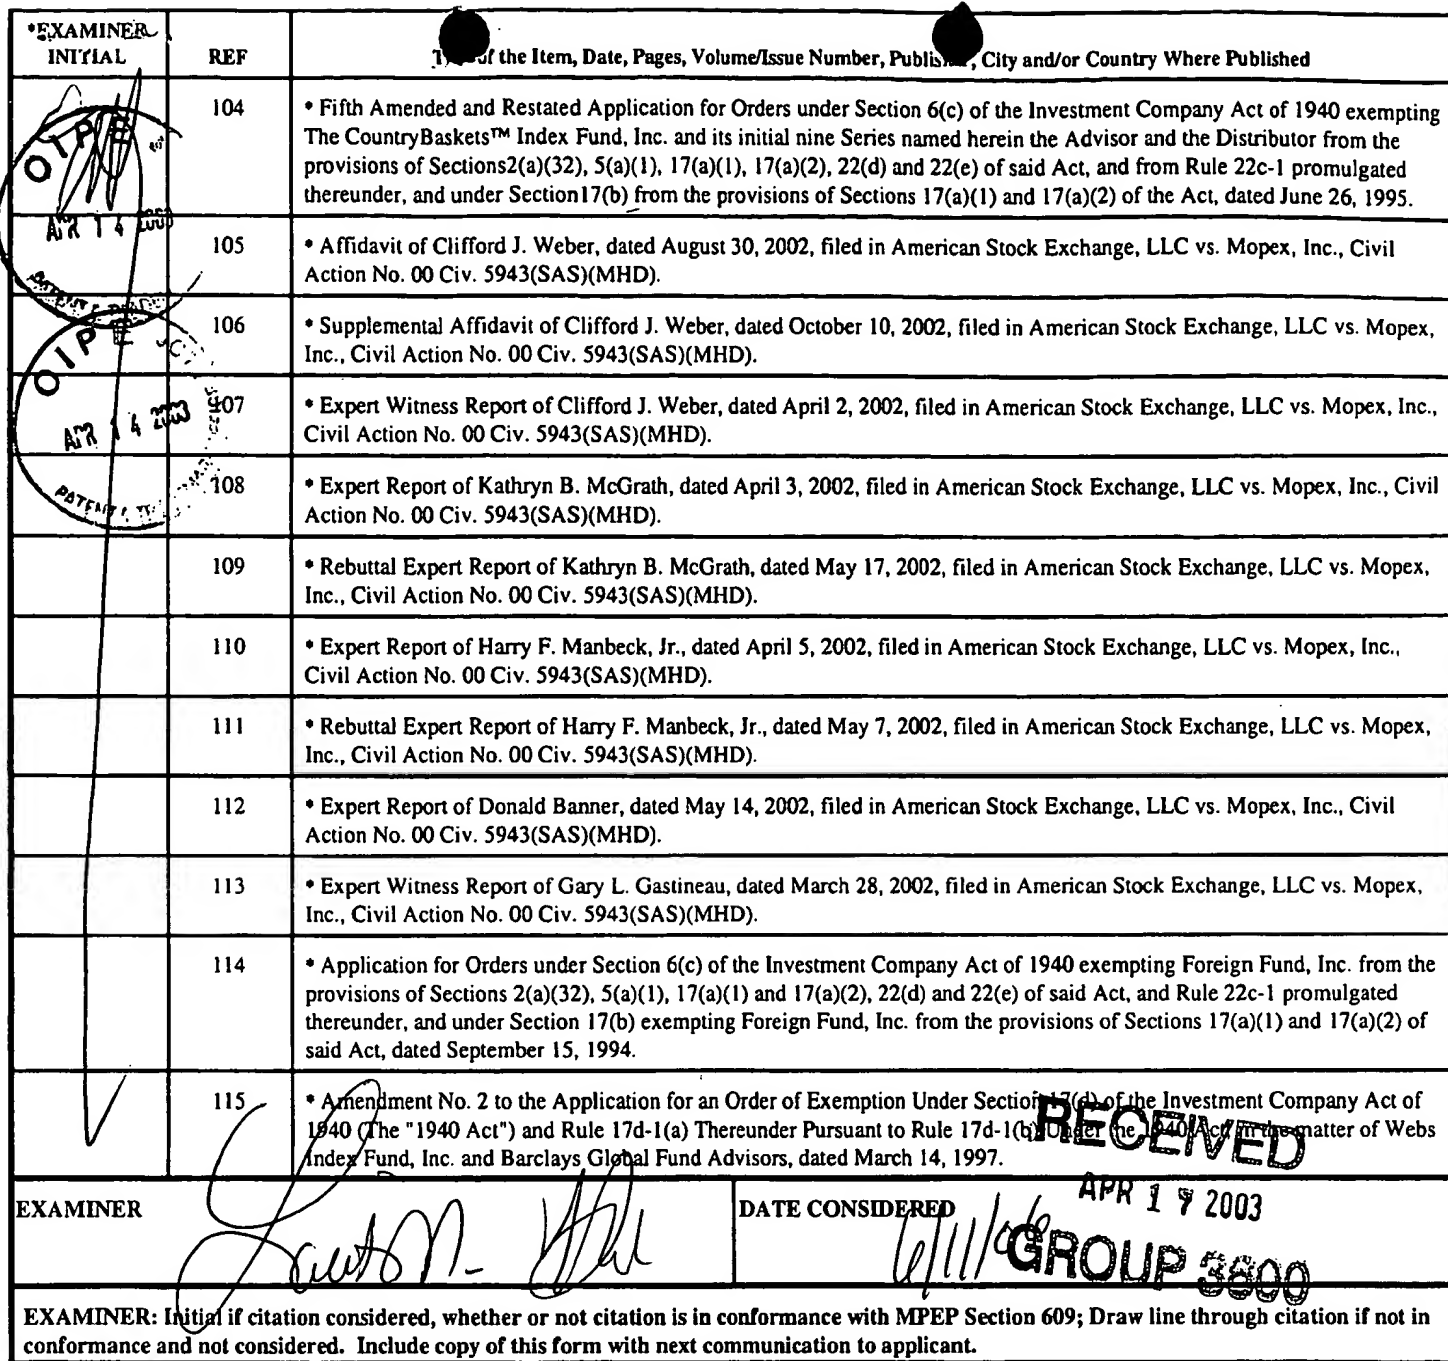 *EXAMINER
INITIAL
REF
of the Item, Date, Pages, Volume/Issue Number, City and/or Country Where Published
104
* Fifth Amended and Restated Application for Orders under Section 6(c) of the Investment Company Act of 1940 exempting
The CountryBaskets™ Index Fund, Inc. and its initial nine Series named herein the Advisor and the Distributor from the
provisions of Sections2(a)(32), 5(a)(1), 17(a)(1), 17(a)(2), 22(d) and 22(e) of said Act, and from Rule 22c-1 promulgated
thereunder, and under Section17(b) from the provisions of Sections 17(a)(1) and 17(a)(2) of the Act, dated June 26, 1995.
OIPE
APR 14 2003
105
* Affidavit of Clifford J. Weber, dated August 30, 2002, filed in American Stock Exchange, LLC vs. Mopex, Inc., Civil
Action No. 00 Civ. 5943(SAS)(MHD).
PATENT &
106
* Supplemental Affidavit of Clifford J. Weber, dated October 10, 2002, filed in American Stock Exchange, LLC vs. Mopex,
Inc., Civil Action No. 00 Civ. 5943(SAS)(MHD).
OIPE
APR 14 2003
107
* Expert Witness Report of Clifford J. Weber, dated April 2, 2002, filed in American Stock Exchange, LLC vs. Mopex, Inc.,
Civil Action No. 00 Civ. 5943(SAS)(MHD).
PATENT &
108
* Expert Report of Kathryn B. McGrath, dated April 3, 2002, filed in American Stock Exchange, LLC vs. Mopex, Inc., Civil
Action No. 00 Civ. 5943(SAS)(MHD).
109
* Rebuttal Expert Report of Kathryn B. McGrath, dated May 17, 2002, filed in American Stock Exchange, LLC vs. Mopex,
Inc., Civil Action No. 00 Civ. 5943(SAS)(MHD).
110
* Expert Report of Harry F. Manbeck, Jr., dated April 5, 2002, filed in American Stock Exchange, LLC vs. Mopex, Inc.,
Civil Action No. 00 Civ. 5943(SAS)(MHD).
111
* Rebuttal Expert Report of Harry F. Manbeck, Jr., dated May 7, 2002, filed in American Stock Exchange, LLC vs. Mopex,
Inc., Civil Action No. 00 Civ. 5943(SAS)(MHD).
112
* Expert Report of Donald Banner, dated May 14, 2002, filed in American Stock Exchange, LLC vs. Mopex, Inc., Civil
Action No. 00 Civ. 5943(SAS)(MHD).
113
* Expert Witness Report of Gary L. Gastineau, dated March 28, 2002, filed in American Stock Exchange, LLC vs. Mopex,
Inc., Civil Action No. 00 Civ. 5943(SAS)(MHD).
114
* Application for Orders under Section 6(c) of the Investment Company Act of 1940 exempting Foreign Fund, Inc. from the
provisions of Sections 2(a)(32), 5(a)(1), 17(a)(1) and 17(a)(2), 22(d) and 22(e) of said Act, and Rule 22c-1 promulgated
thereunder, and under Section 17(b) exempting Foreign Fund, Inc. from the provisions of Sections 17(a)(1) and 17(a)(2) of
said Act, dated September 15, 1994.
115
* Amendment No. 2 to the Application for an Order of Exemption Under Section 17(d) of the Investment Company Act of
1940 (The "1940 Act") and Rule 17d-1(a) Thereunder Pursuant to Rule 17d-1(b) Under the 1940 Act in the matter of Webs
Index Fund, Inc. and Barclays Global Fund Advisors, dated March 14, 1997.
RECEIVED
APR 17 2003
GROUP 3600
EXAMINER
DATE CONSIDERED
EXAMINER: Initial if citation considered, whether or not citation is in conformance with MPEP Section 609; Draw line through citation if not in
conformance and not considered. Include copy of this form with next communication to applicant.